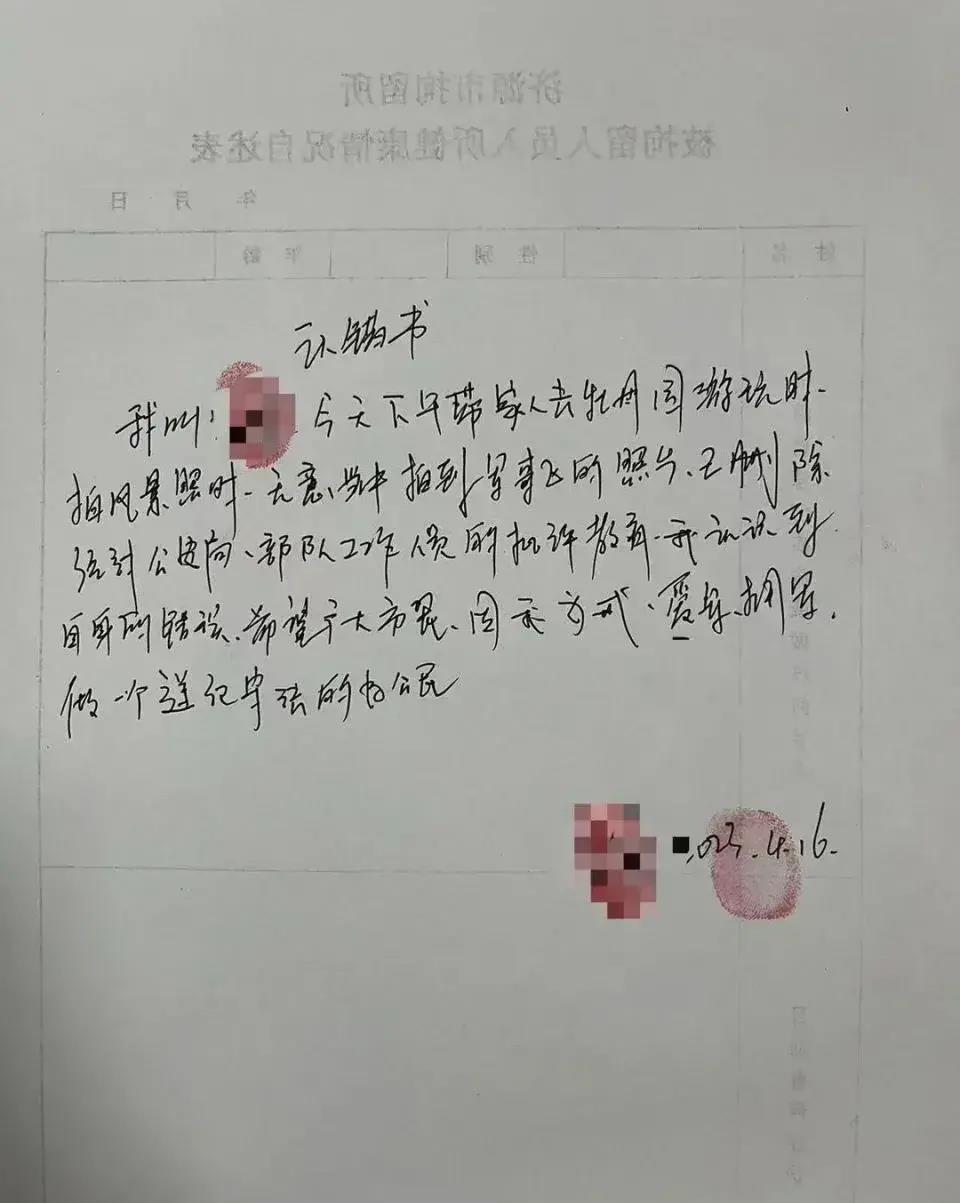 济源市拘留所
被拘留人员入所健康情况自述表
年 月 日
姓名 性别 年龄
认错书
我叫: 今天下午带家人去牡丹园游玩时.
拍风景照时.无意当中拍到军事飞的照片、已删除
经过公安局、部队工作人员的批评教育.我认识到
自身的错误、希望广大市民、因示为戒、爱军、拥军.
做一个遵纪守法的好公民
.023.4.16.